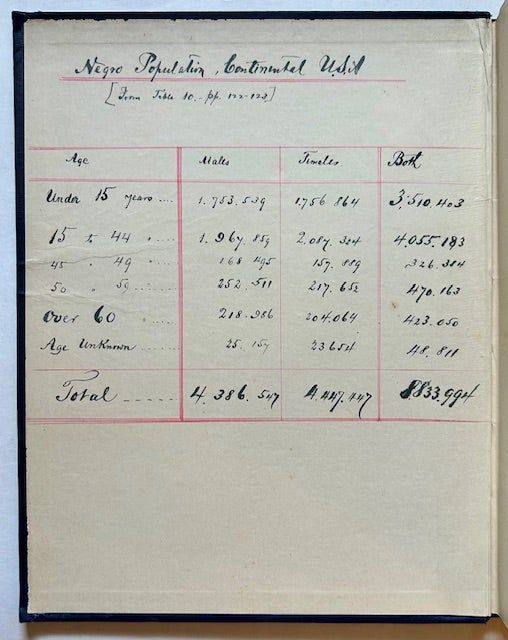 Negro Population, Continental U.S.A
[From Table 10.- pp. 122-123]
Age Males Females Both
Under 15 years .... 1.753.539 1.756 864 3.510.403
15 to 44 " .... 1.967.859 2.087.324 4.055.183
45 " 49 " .... 168 495 157.889 326.384
50 " 59 " .... 252.511 217.652 470.163
Over 60 " .... 218.986 204.064 423.050
Age Unknown ..... 25.157 23654 48.811
Total ---- 4.386.547 4.447.447 8833.994